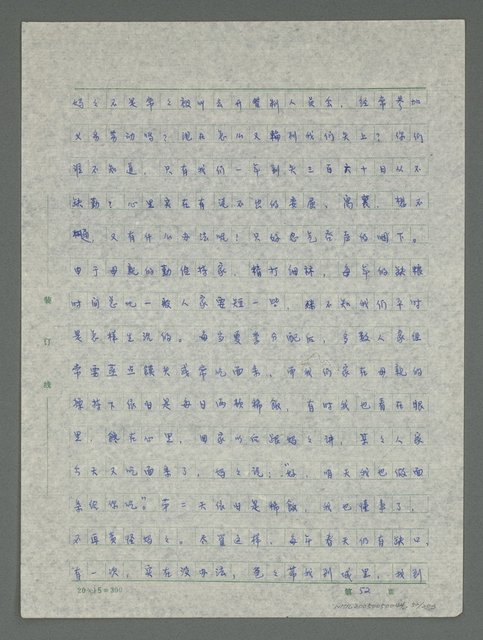 妈々不是常々被叫去开管制人员会，经常参加
义务劳动吗？现在怎么又轮到我们头上？你们
谁不知道，只有我们一年到头三百六十日从不
缺勤？心里实在有说不出的委屈、离襄，想不
通，又有什么办法呢？只好忍气吞声的咽下。
由于母亲的勤俭持家，精打细算，每年的缺粮
时间总比一般人家要短一些，殊不知我们平时
是怎样生活的。每当夏季分配后，多数人家经
常要蒸点馒头或常吃面条，而我们家在母亲的
操持下依旧是每日两顿稀飯，有时我也看在眼
里，馋在心里，回家以后跟妈々讲，某々人家
今天又吃面条了，妈々说：“好，明天我也做面
条但你吃”。第二天依旧是稀飯，我也懂事了，
不再责怪妈々。尽管这样，每年春天仍有缺口，
有一次，实在没办法，爸々带我到城里，找到
装
订
线
20×15=300
第 52 页